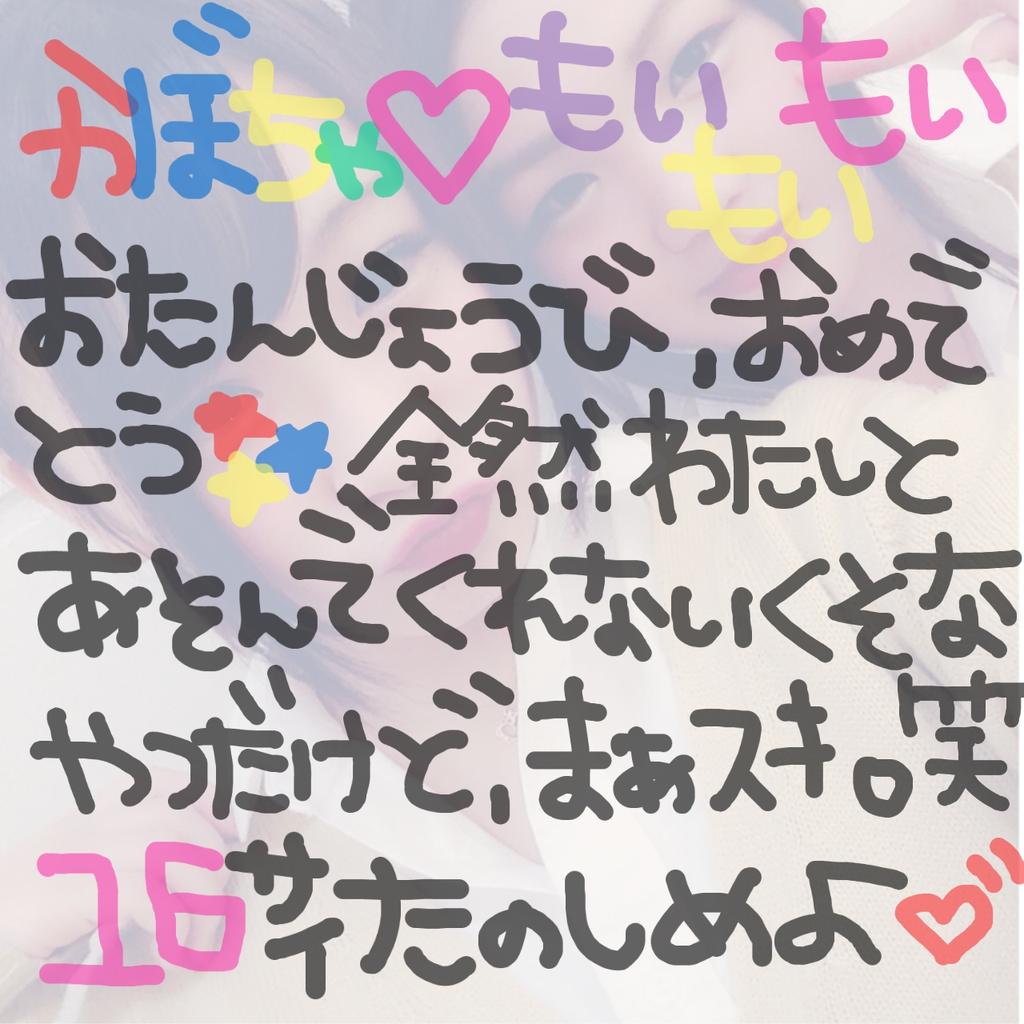 かぼちゃ♡もい もい
もい
おたんじょうび,おめで
とう 全然わたしと
あそんでくれないくそな
やつだけど,まぁスキ。笑
16サイたのしめよ♡